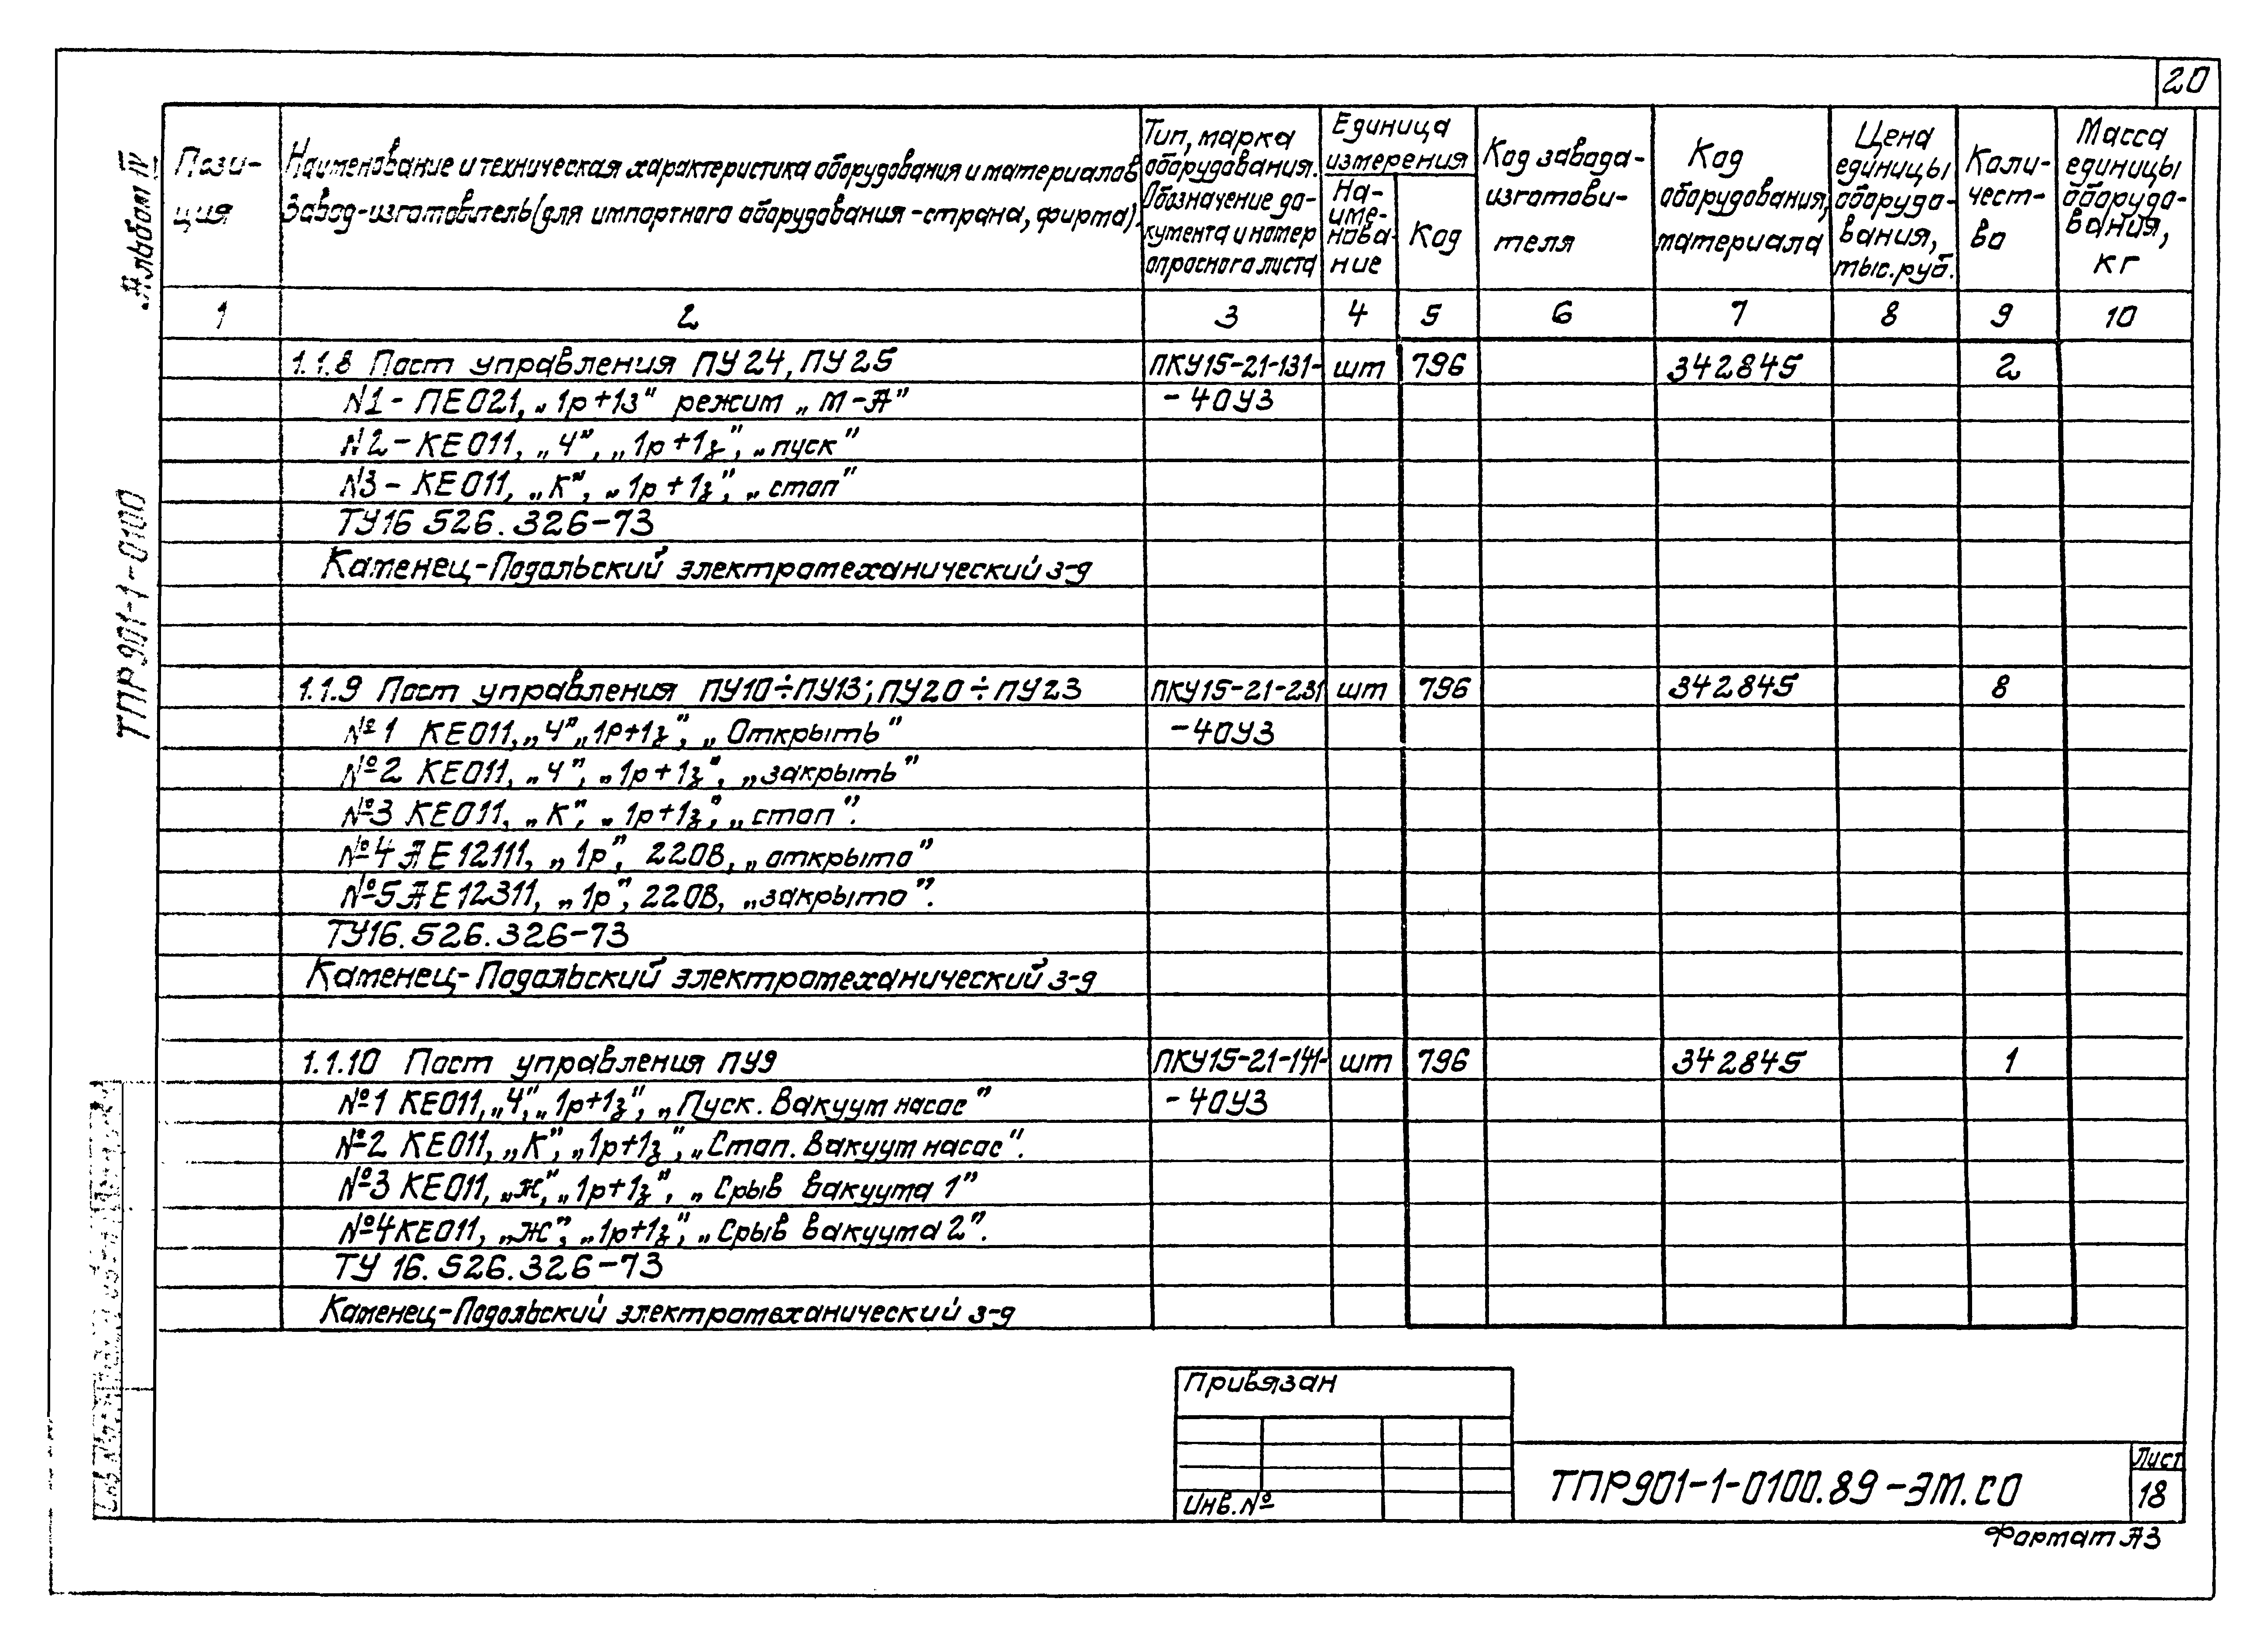 20
Альбом IV
ТПР 901-1-0100
Пози-
ция
Наименование и техническая характеристика оборудования и материалов
Завод-изготовитель (для импортного оборудования - страна, фирма).
Тип, марка
оборудования.
Обозначение до-
кумента и номер
опросного листа
Единица
измерения
На-
име-
нова-
ние
Код
Код завода-
изготови-
теля
Код
оборудования,
материала
Цена
единицы
оборудо-
вания,
тыс.руб.
Коли-
чест-
во
Масса
единицы
оборудо-
вания,
кг
1 2 3 4 5 6 7 8 9 10
1.1.8 Пост управления ПУ24, ПУ25 ПКУ15-21-131- шт 796 342845 2
N1 - ПЕ021, „1р+1з" режим „М-А" -40У3
N2 - КЕ011, „Ч", „1р+1з", „пуск"
N3 - КЕ011, „К", „1р+1з", „стоп"
ТУ16 526.326-73
Каменец-Подольский электромеханический з-д
1.1.9 Пост управления ПУ10÷ПУ13; ПУ20÷ПУ23 ПКУ15-21-231 шт 796 342845 8
№1 КЕ011, „Ч" „1р+1з", „Открыть" -40У3
№2 КЕ011, „Ч", „1р+1з", „закрыть"
№3 КЕ011, „К", „1р+1з", „стоп".
№4 АЕ12111, „1р", 220В, „открыто"
№5 АЕ12311, „1р", 220В, „закрыто".
ТУ16.526.326-73
Каменец-Подольский электромеханический з-д
1.1.10 Пост управления ПУ9 ПКУ15-21-141- шт 796 342845 1
№1 КЕ011, „Ч", „1р+1з", „Пуск. Вакуум насос" -40У3
№2 КЕ011, „К", „1р+1з", „Стоп. Вакуум насос".
№3 КЕ011, „Ж", „1р+1з", „Срыв вакуума 1"
№4 КЕ011, „Ж", „1р+1з", „Срыв вакуума 2".
ТУ 16.526.326-73
Каменец-Подольский электромеханический з-д
Привязан
Инв.№
ТПР901-1-0100.89-ЭМ.СО
Лист
18
Формат А3